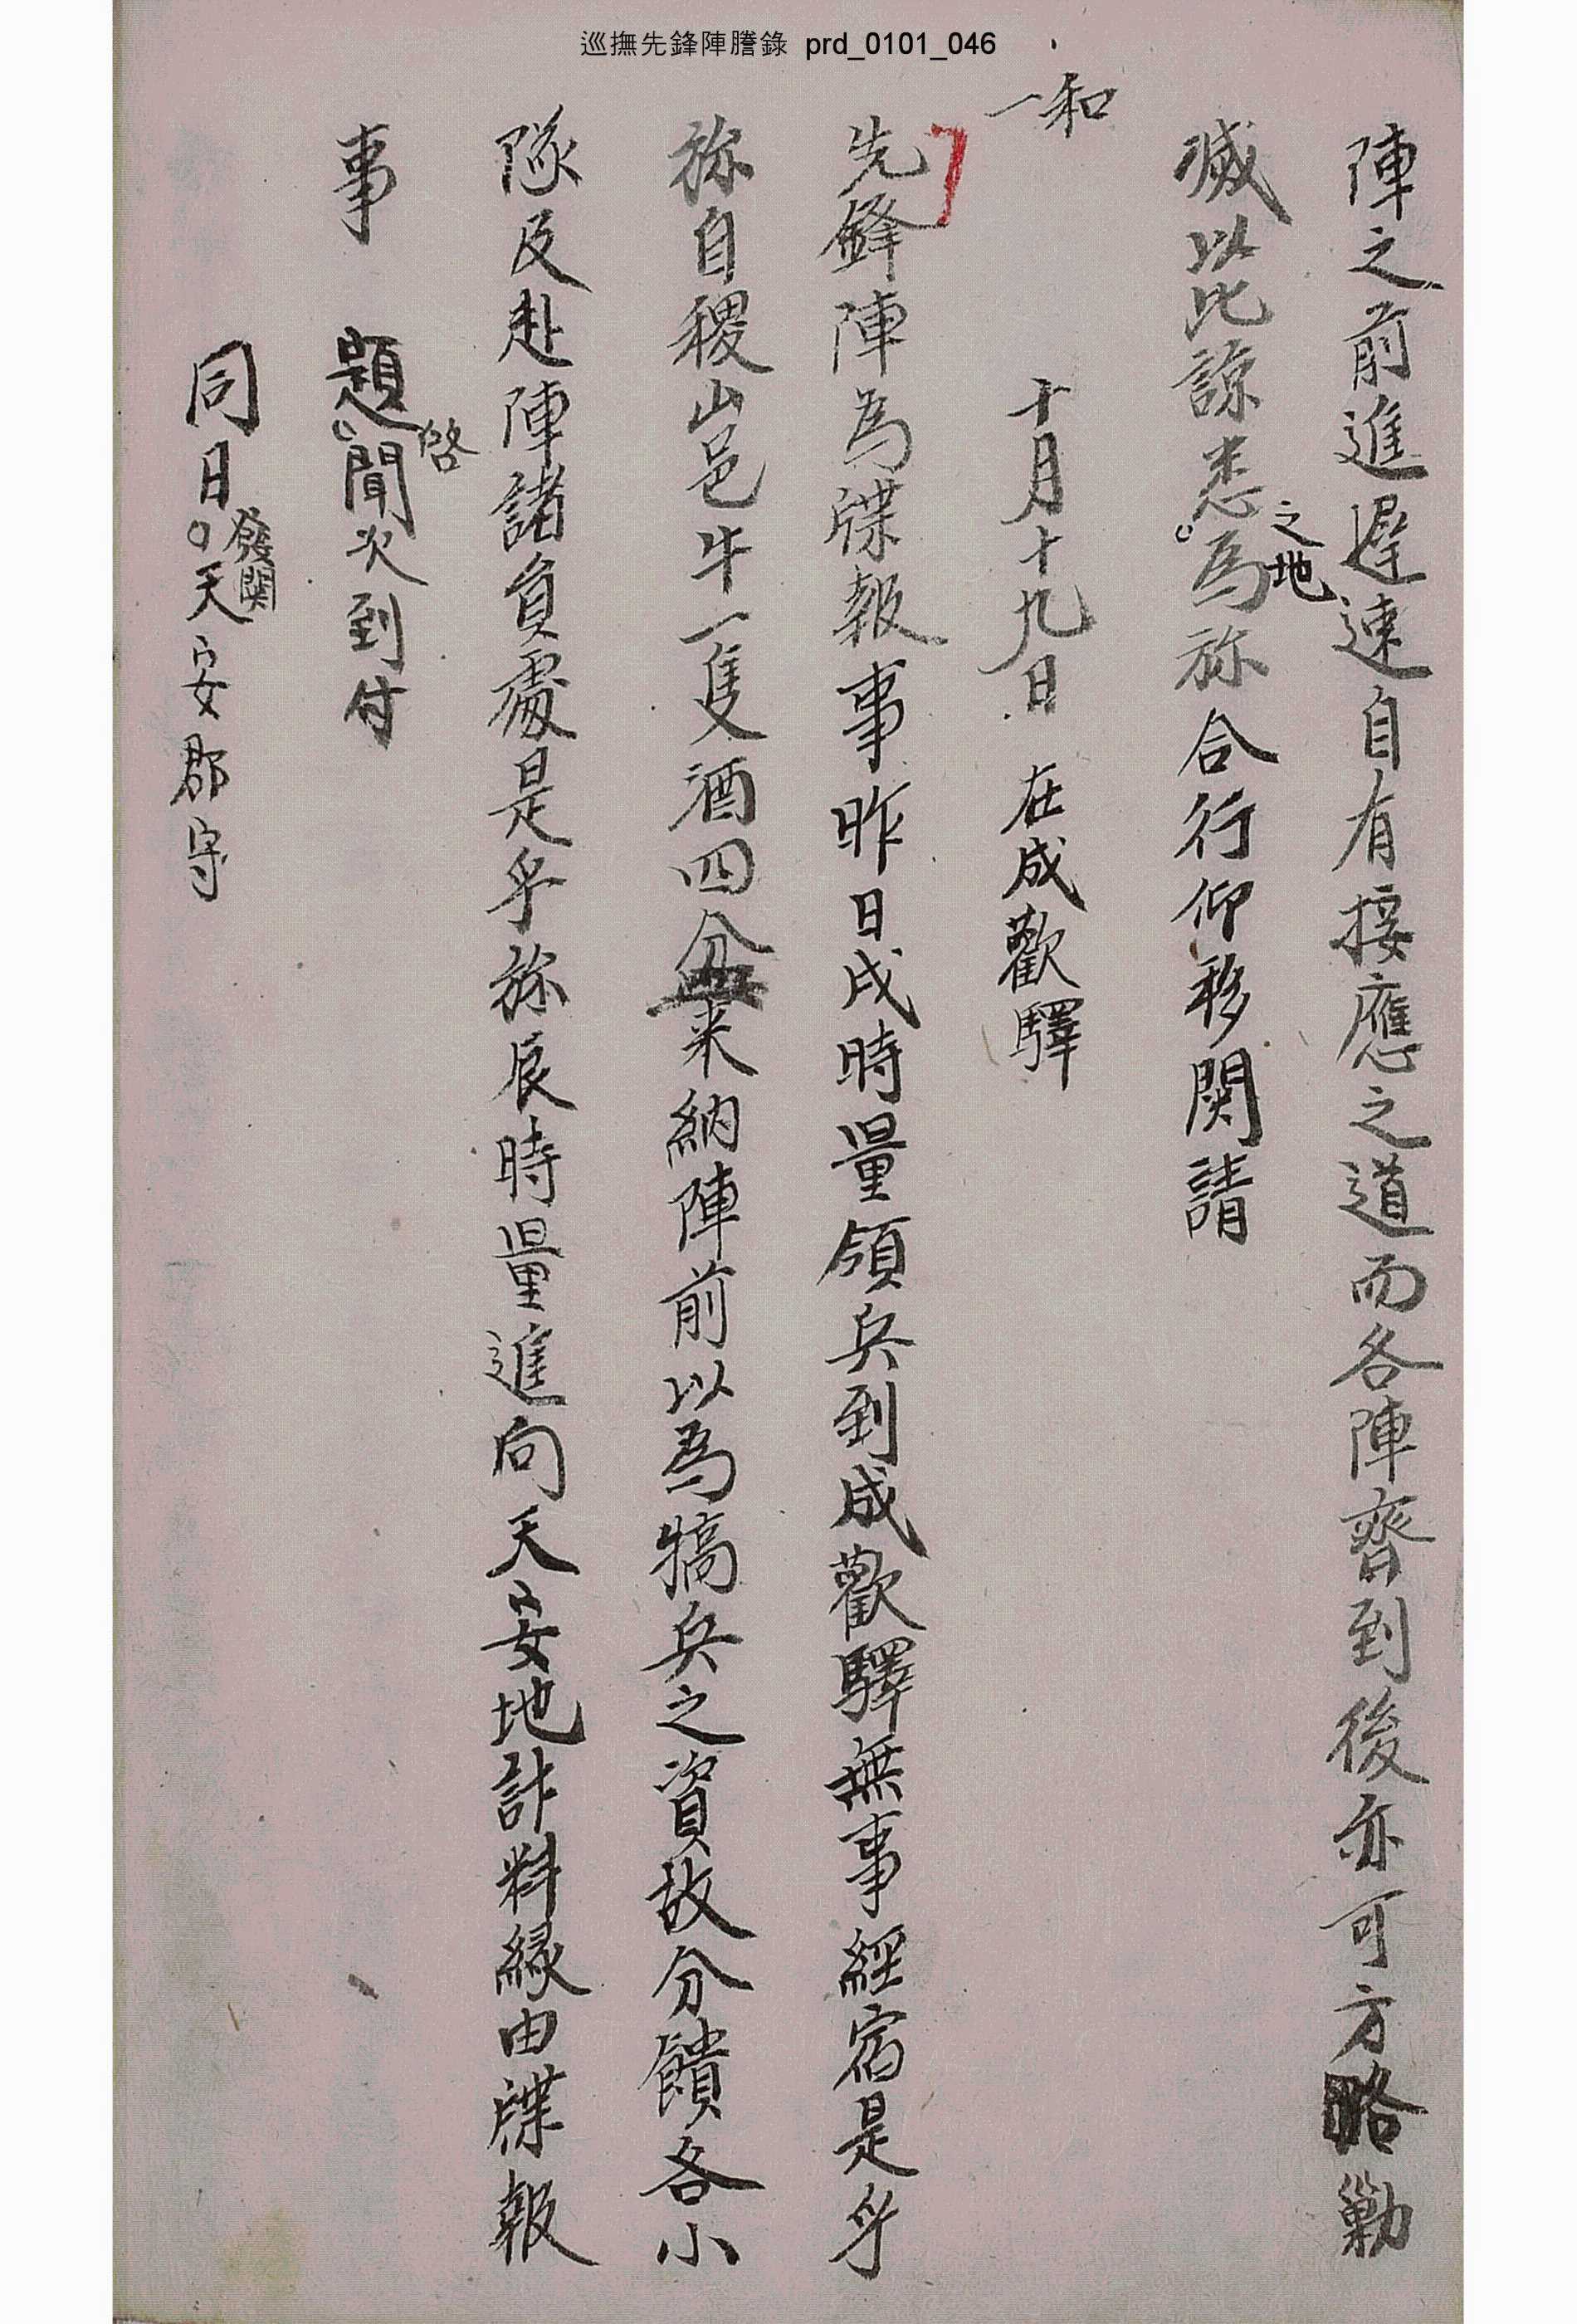 巡撫先鋒陣謄錄 prd_0101_046
陣之前進遲速自有接應之道而各陣齊到後亦可方略勦
滅以此諒悉之地爲旀合行仰移関請
一和
十月十九日 在成歡驛
先鋒陣爲牒報事昨日戌時量領兵到成歡驛無事經宿是乎
旀自稷山邑牛一隻酒四盆来納陣前以爲犒兵之資故分饋各小
隊及赴陣諸負處是乎旀辰時量進向天安地計料緣由牒報
事 題啓聞次到付
同日發関天安郡守